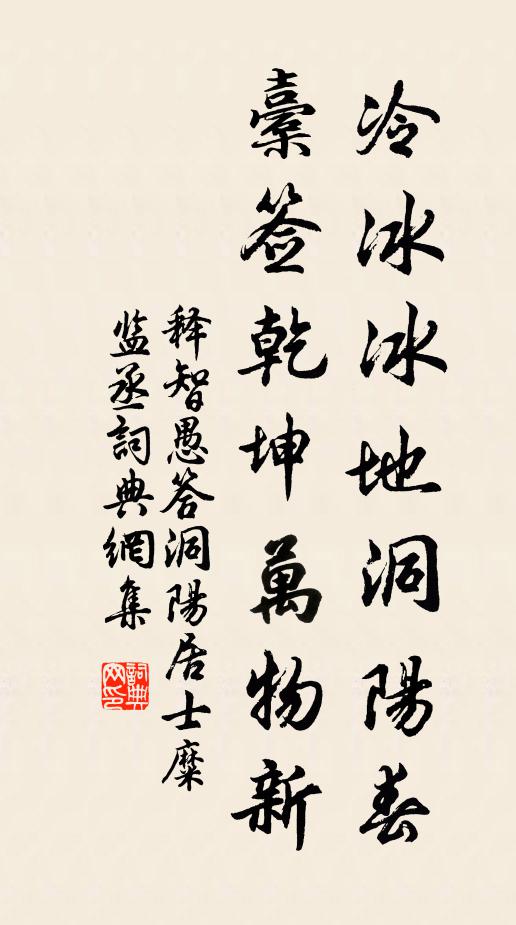 冷冰冰地洞陽春
橐签乾坤萬物新
释智愚答洞陽居士糜
监丞詞典網集
詞典网印